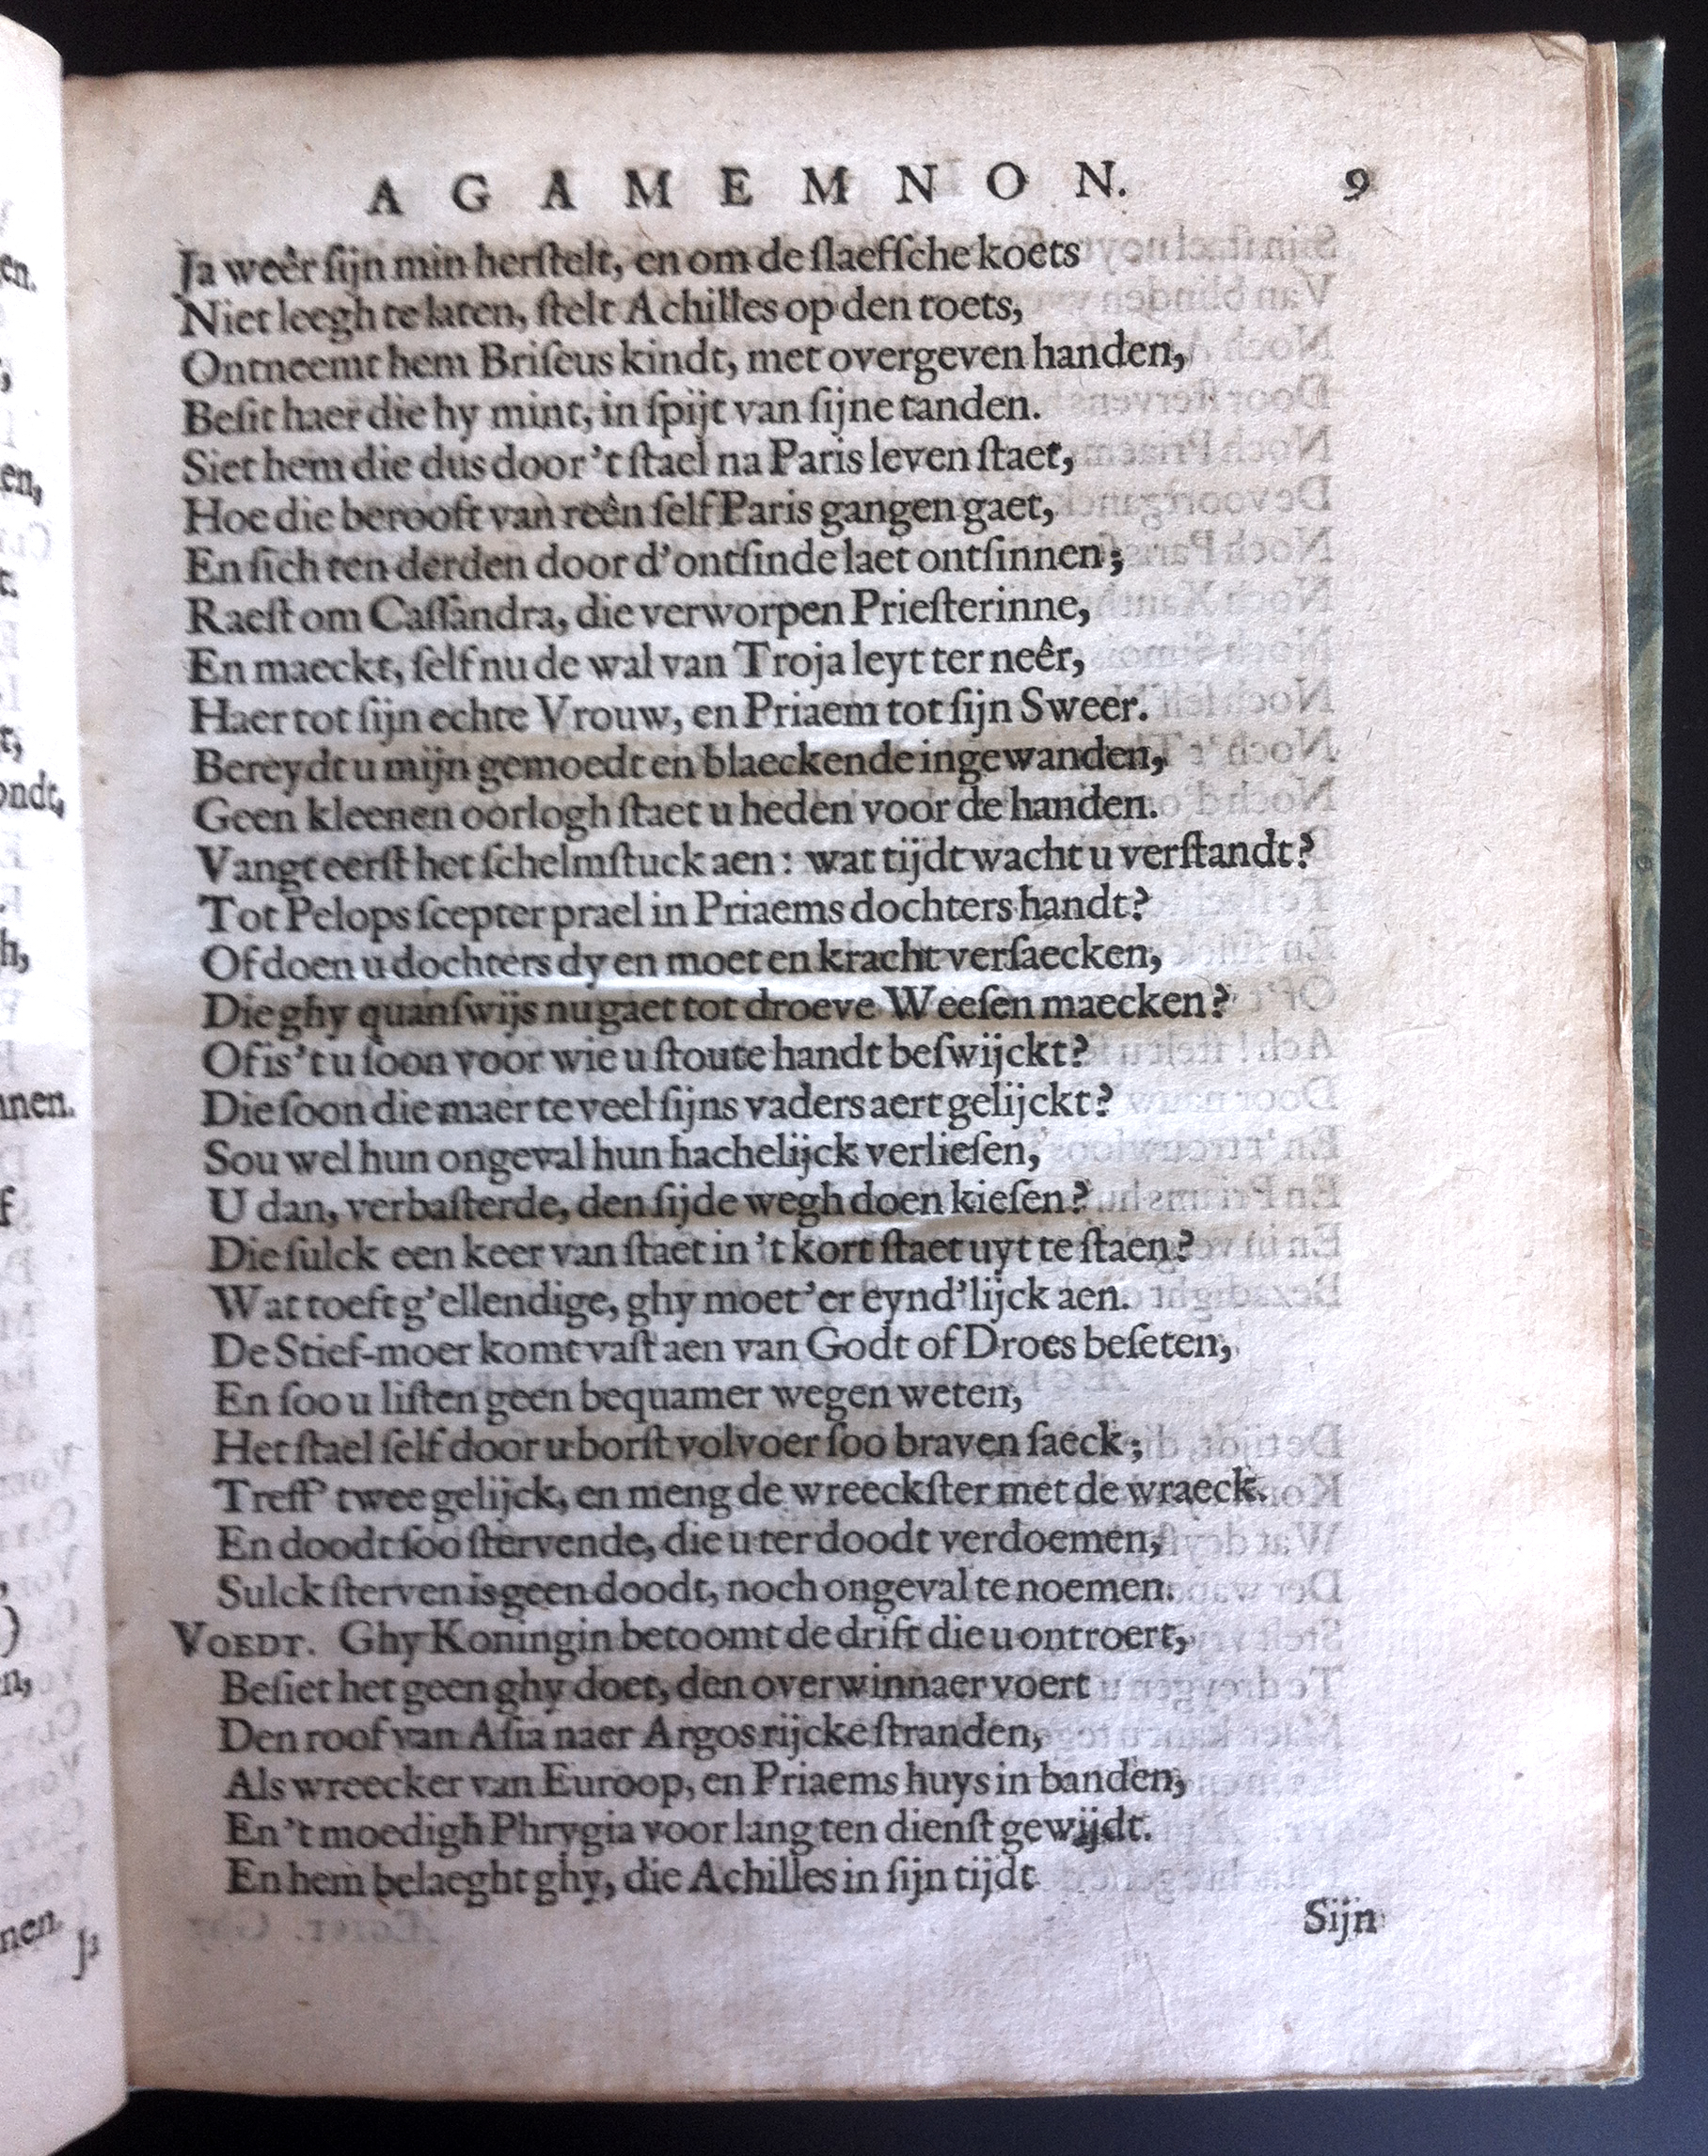 AGAMEMNON. 9
Ja weêr ſijn min herſtelt, en om de ſlaefſche koets
Niet leegh te laten, ſtelt Achilles op den toets,
Ontneemt hem Briſeus kindt, met overgeven handen,
Beſit haer die hy mint, in ſpijt van ſijne tanden.
Siet hem die dus door 't ſtael na Paris leven ſtaet,
Hoe die berooft van reên ſelf Paris gangen gaet,
En ſich ten derden door d'ontſinde laet ontſinnen;
Raeſt om Caſſandra, die verworpen Prieſterinne,
En maeckt, ſelf nu de wal van Troja leyt ter neêr,
Haer tot ſijn echte Vrouw, en Priaem tot ſijn Sweer.
Bereydt u mijn gemoedt en blaeckende ingewanden,
Geen kleenen oorlogh ſtaet u heden voor de handen.
Vangt eerſt het ſchelmſtuck aen: wat tijdt wacht u verſtandt?
Tot Pelops ſcepter prael in Priaems dochters handt?
Of doen u dochters dy en moet en kracht verſaecken,
Die ghy quanſwijs nu gaet tot droeve Weeſen maecken?
Of is 't u ſoon voor wie u ſtoute handt beſwijckt?
Die ſoon die maer te veel ſijns vaders aert gelijckt?
Sou wel hun ongeval hun hachelijck verlieſen,
U dan, verbaſterde, den ſijde wegh doen kieſen?
Die ſulck een keer van ſtaet in 't kort ſtaet uyt te ſtaen?
Wat toeft g'ellendige, ghy moet'er eynd'lijck aen.
De Stief-moer komt vaſt aen van Godt of Droes beſeten,
En ſoo u liſten geen bequamer wegen weten,
Het ſtael ſelf door u borſt volvoer ſoo braven ſaeck;
Treff' twee gelijck, en meng de wreeckſter met de wraeck.
En doodt ſoo ſtervende, die u ter doodt verdoemen,
Sulck ſterven is geen doodt, noch ongeval te noemen.
VOEDT. Ghy Koningin betoomt de drift die u ontroert,
Beſiet het geen ghy doet, den overwinnaer voert
Den roof van Aſia naer Argos rijcke ſtranden,
Als wreecker van Euroop, en Priaems huys in banden,
En 't moedigh Phrygia voor lang ten dienſt gewijdt.
En hem belaeght ghy, die Achilles in ſijn tijdt
Sijn